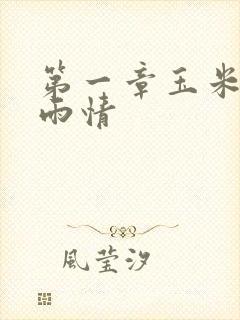 第一章玉米
雨情
風莹汐